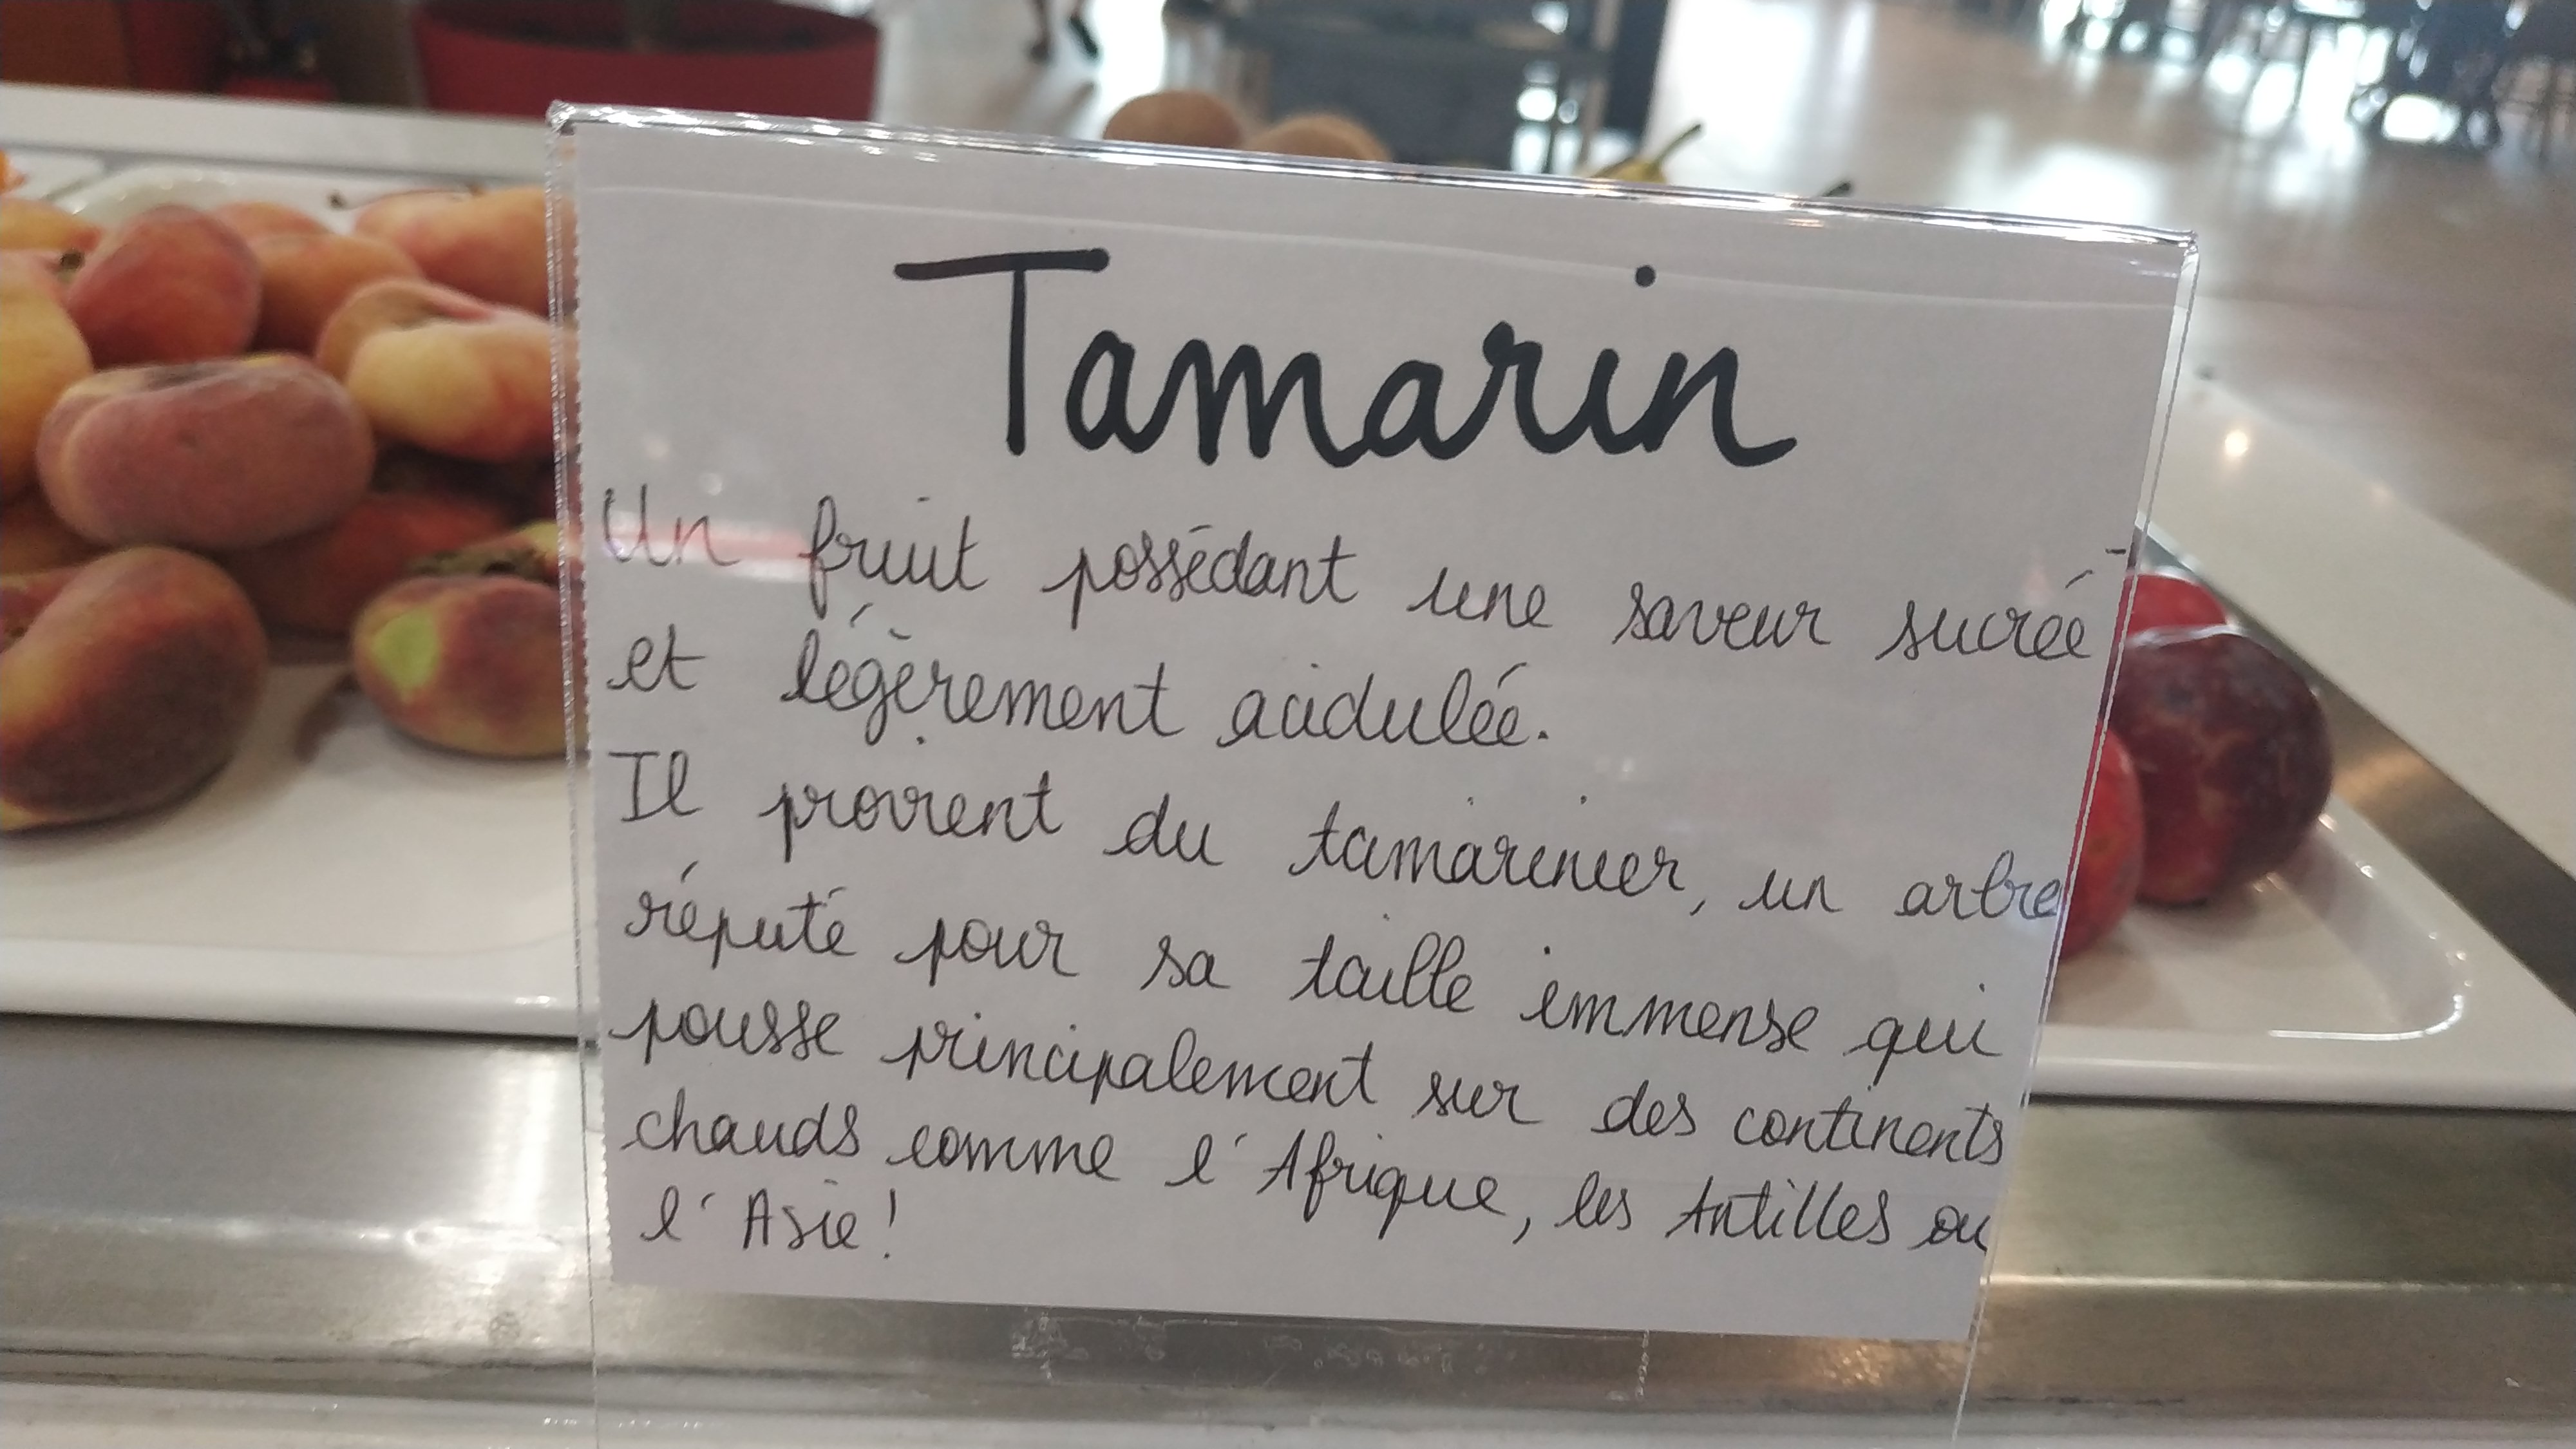 Tamarin
Un fruit possédant une saveur sucrée
et légèrement acidulée.
Il provient du tamarinier, un arbre
réputé pour sa taille immense qui
pousse principalement sur des continents
chauds comme l'Afrique, les Antilles ou
l'Asie!